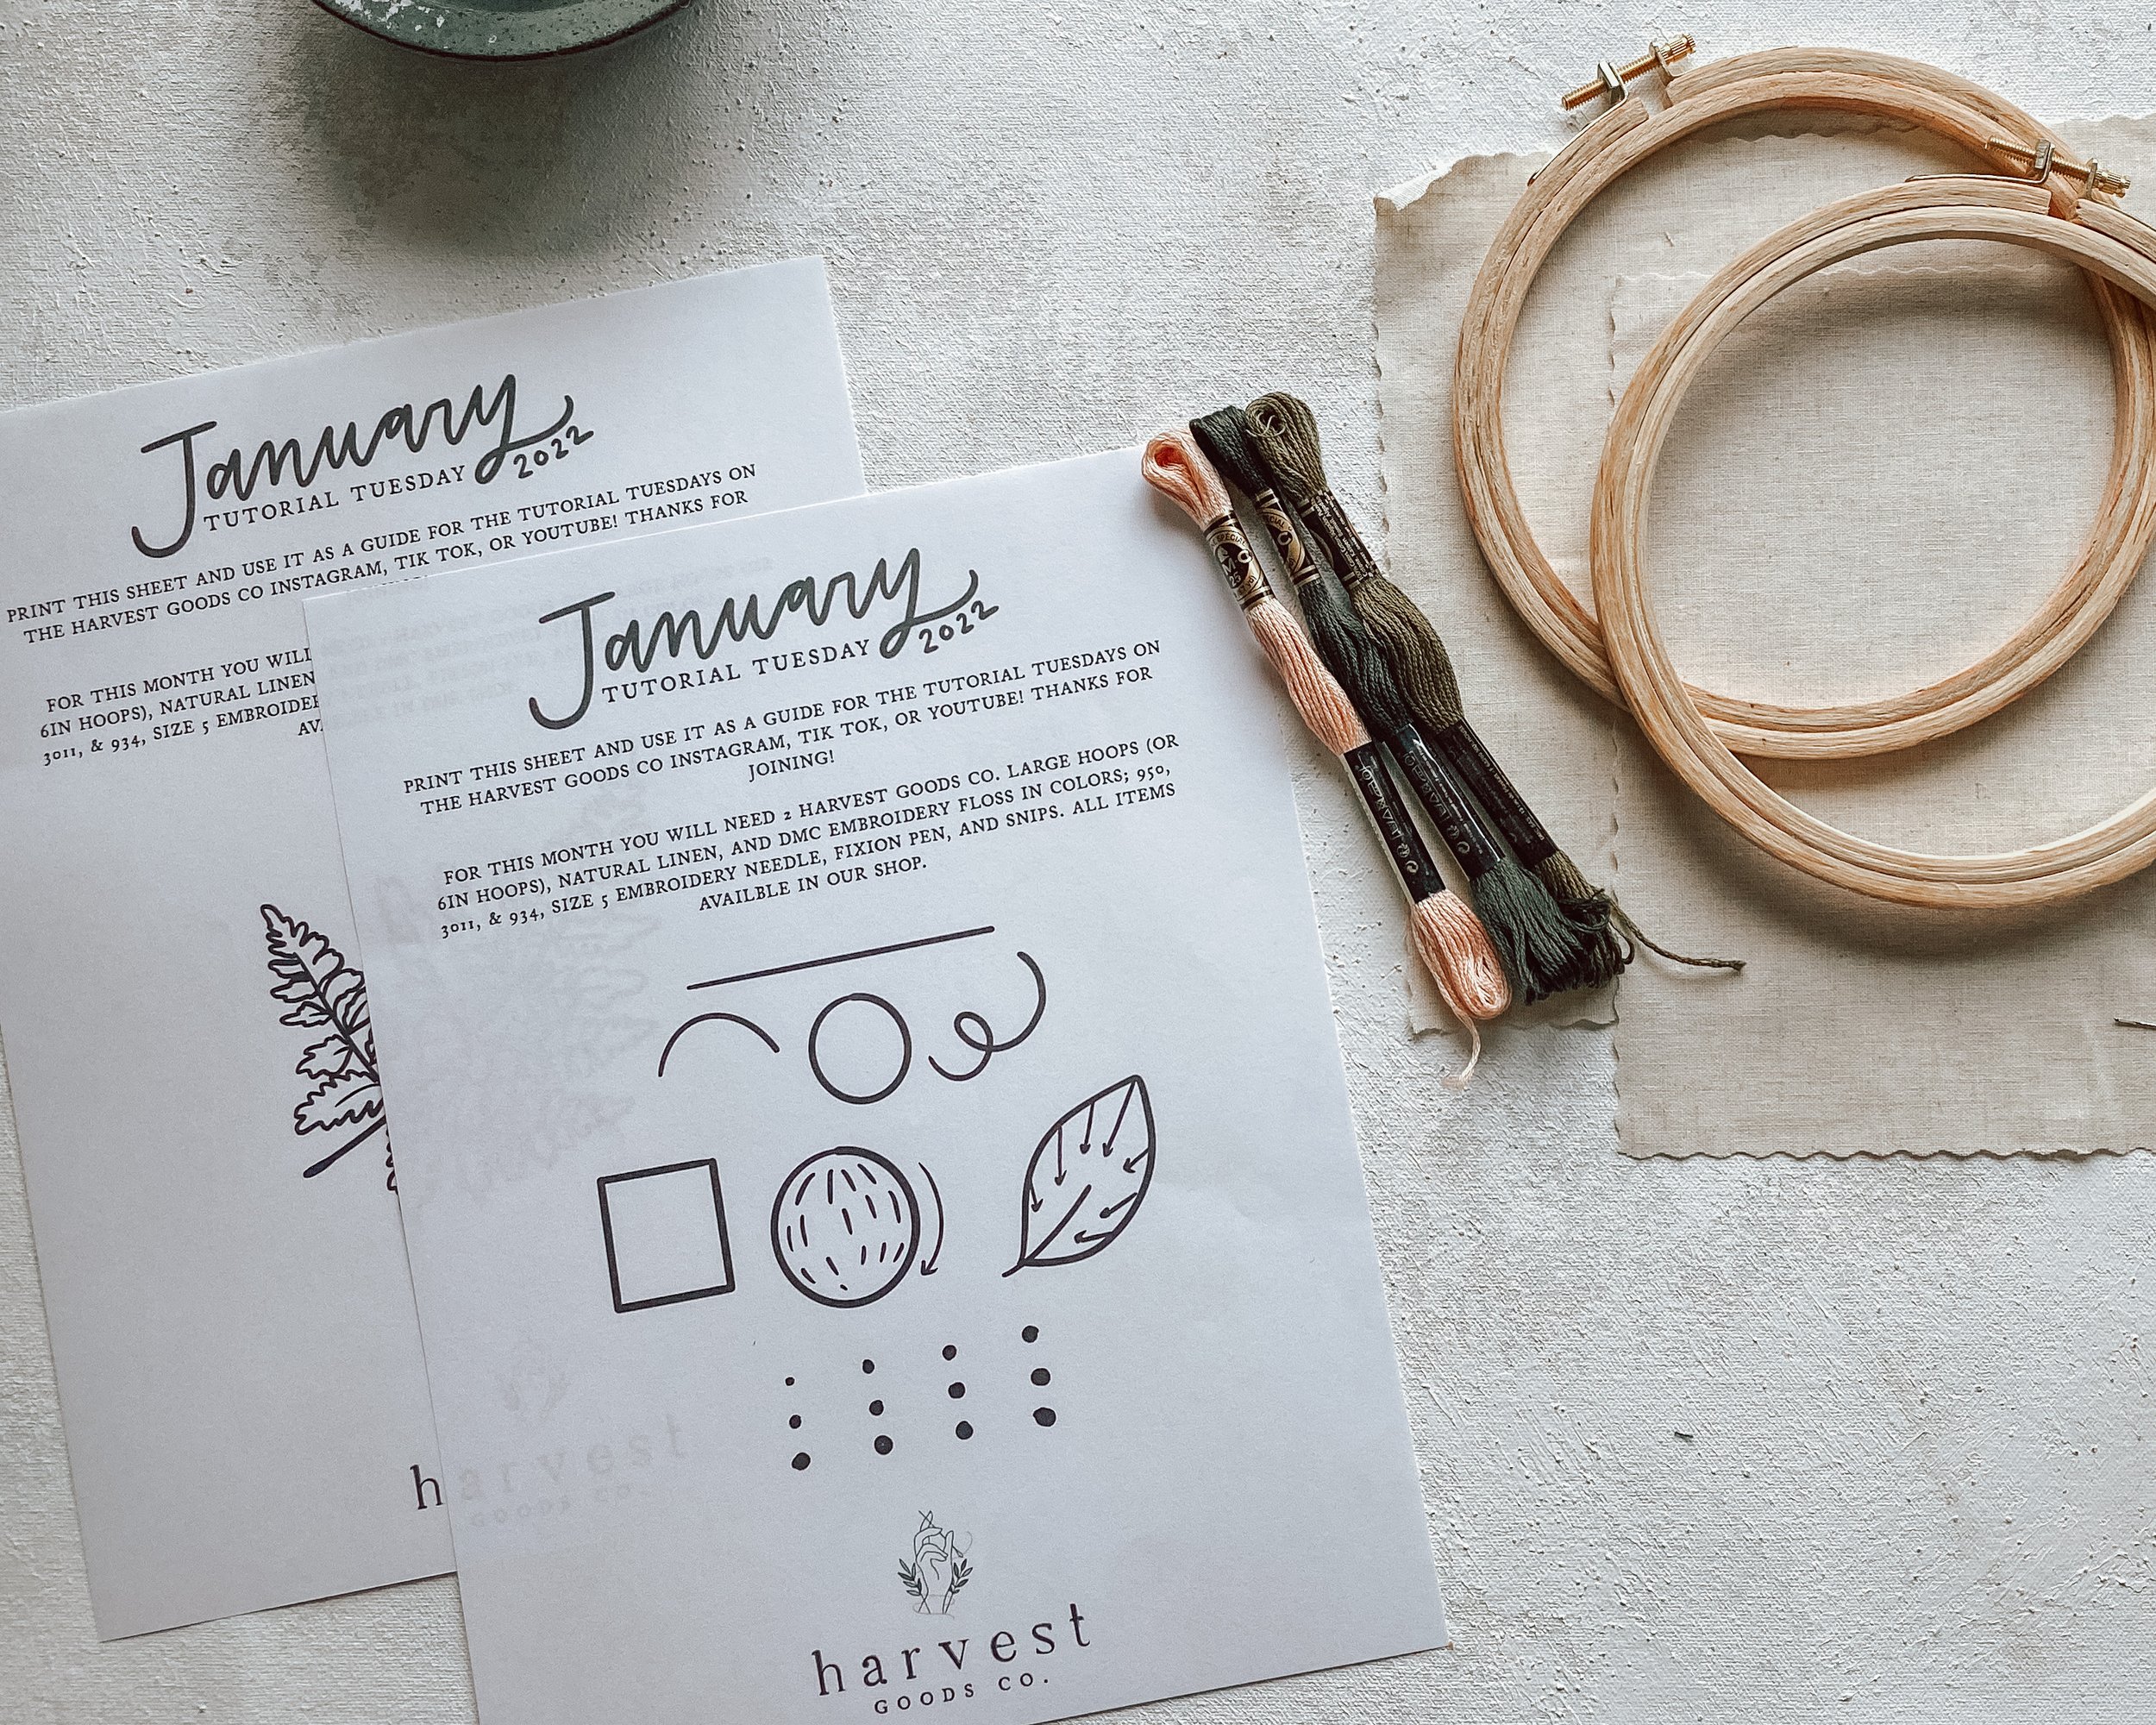 January
2022
TUTORIAL TUESDAY
PRINT THIS SHEET AND USE IT AS A GUIDE FOR THE TUTORIAL TUESDAYS ON
THE HARVEST GOODS CO INSTAGRAM, TIK TOK, OR YOUTUBE! THANKS FOR
FOR THIS MONTH YOU WILL
6IN HOOPS), NATURAL LINEN
3011, & 934, SIZE 5 EMBROIDE
AV
h
January
2022
TUTORIAL TUESDAY
PRINT THIS SHEET AND USE IT AS A GUIDE FOR THE TUTORIAL TUESDAYS ON
THE HARVEST GOODS CO INSTAGRAM, TIK TOK, OR YOUTUBE! THANKS FOR
JOINING!
FOR THIS MONTH YOU WILL NEED 2 HARVEST GOODS CO. LARGE HOOPS (OR
6IN HOOPS), NATURAL LINEN, AND DMC EMBROIDERY FLOSS IN COLORS; 950,
3011, & 934, SIZE 5 EMBROIDERY NEEDLE, FIXION PEN, AND SNIPS. ALL ITEMS
AVAILBLE IN OUR SHOP.
harvest
GOODS CO.